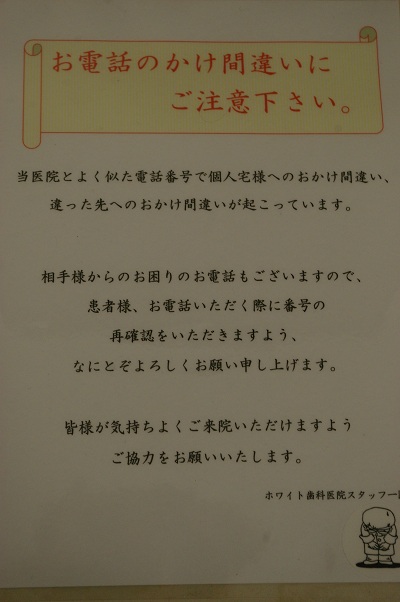 お電話のかけ間違いに
ご注意下さい。
当医院とよく似た電話番号で個人宅様へのおかけ間違い、
違った先へのおかけ間違いが起こっています。
相手様からのお困りのお電話もございますので、
患者様、お電話いただく際に番号の
再確認をいただきますよう、
なにとぞよろしくお願い申し上げます。
皆様が気持ちよくご来院いただけますよう
ご協力をお願いいたします。
ホワイト歯科医院スタッフ一